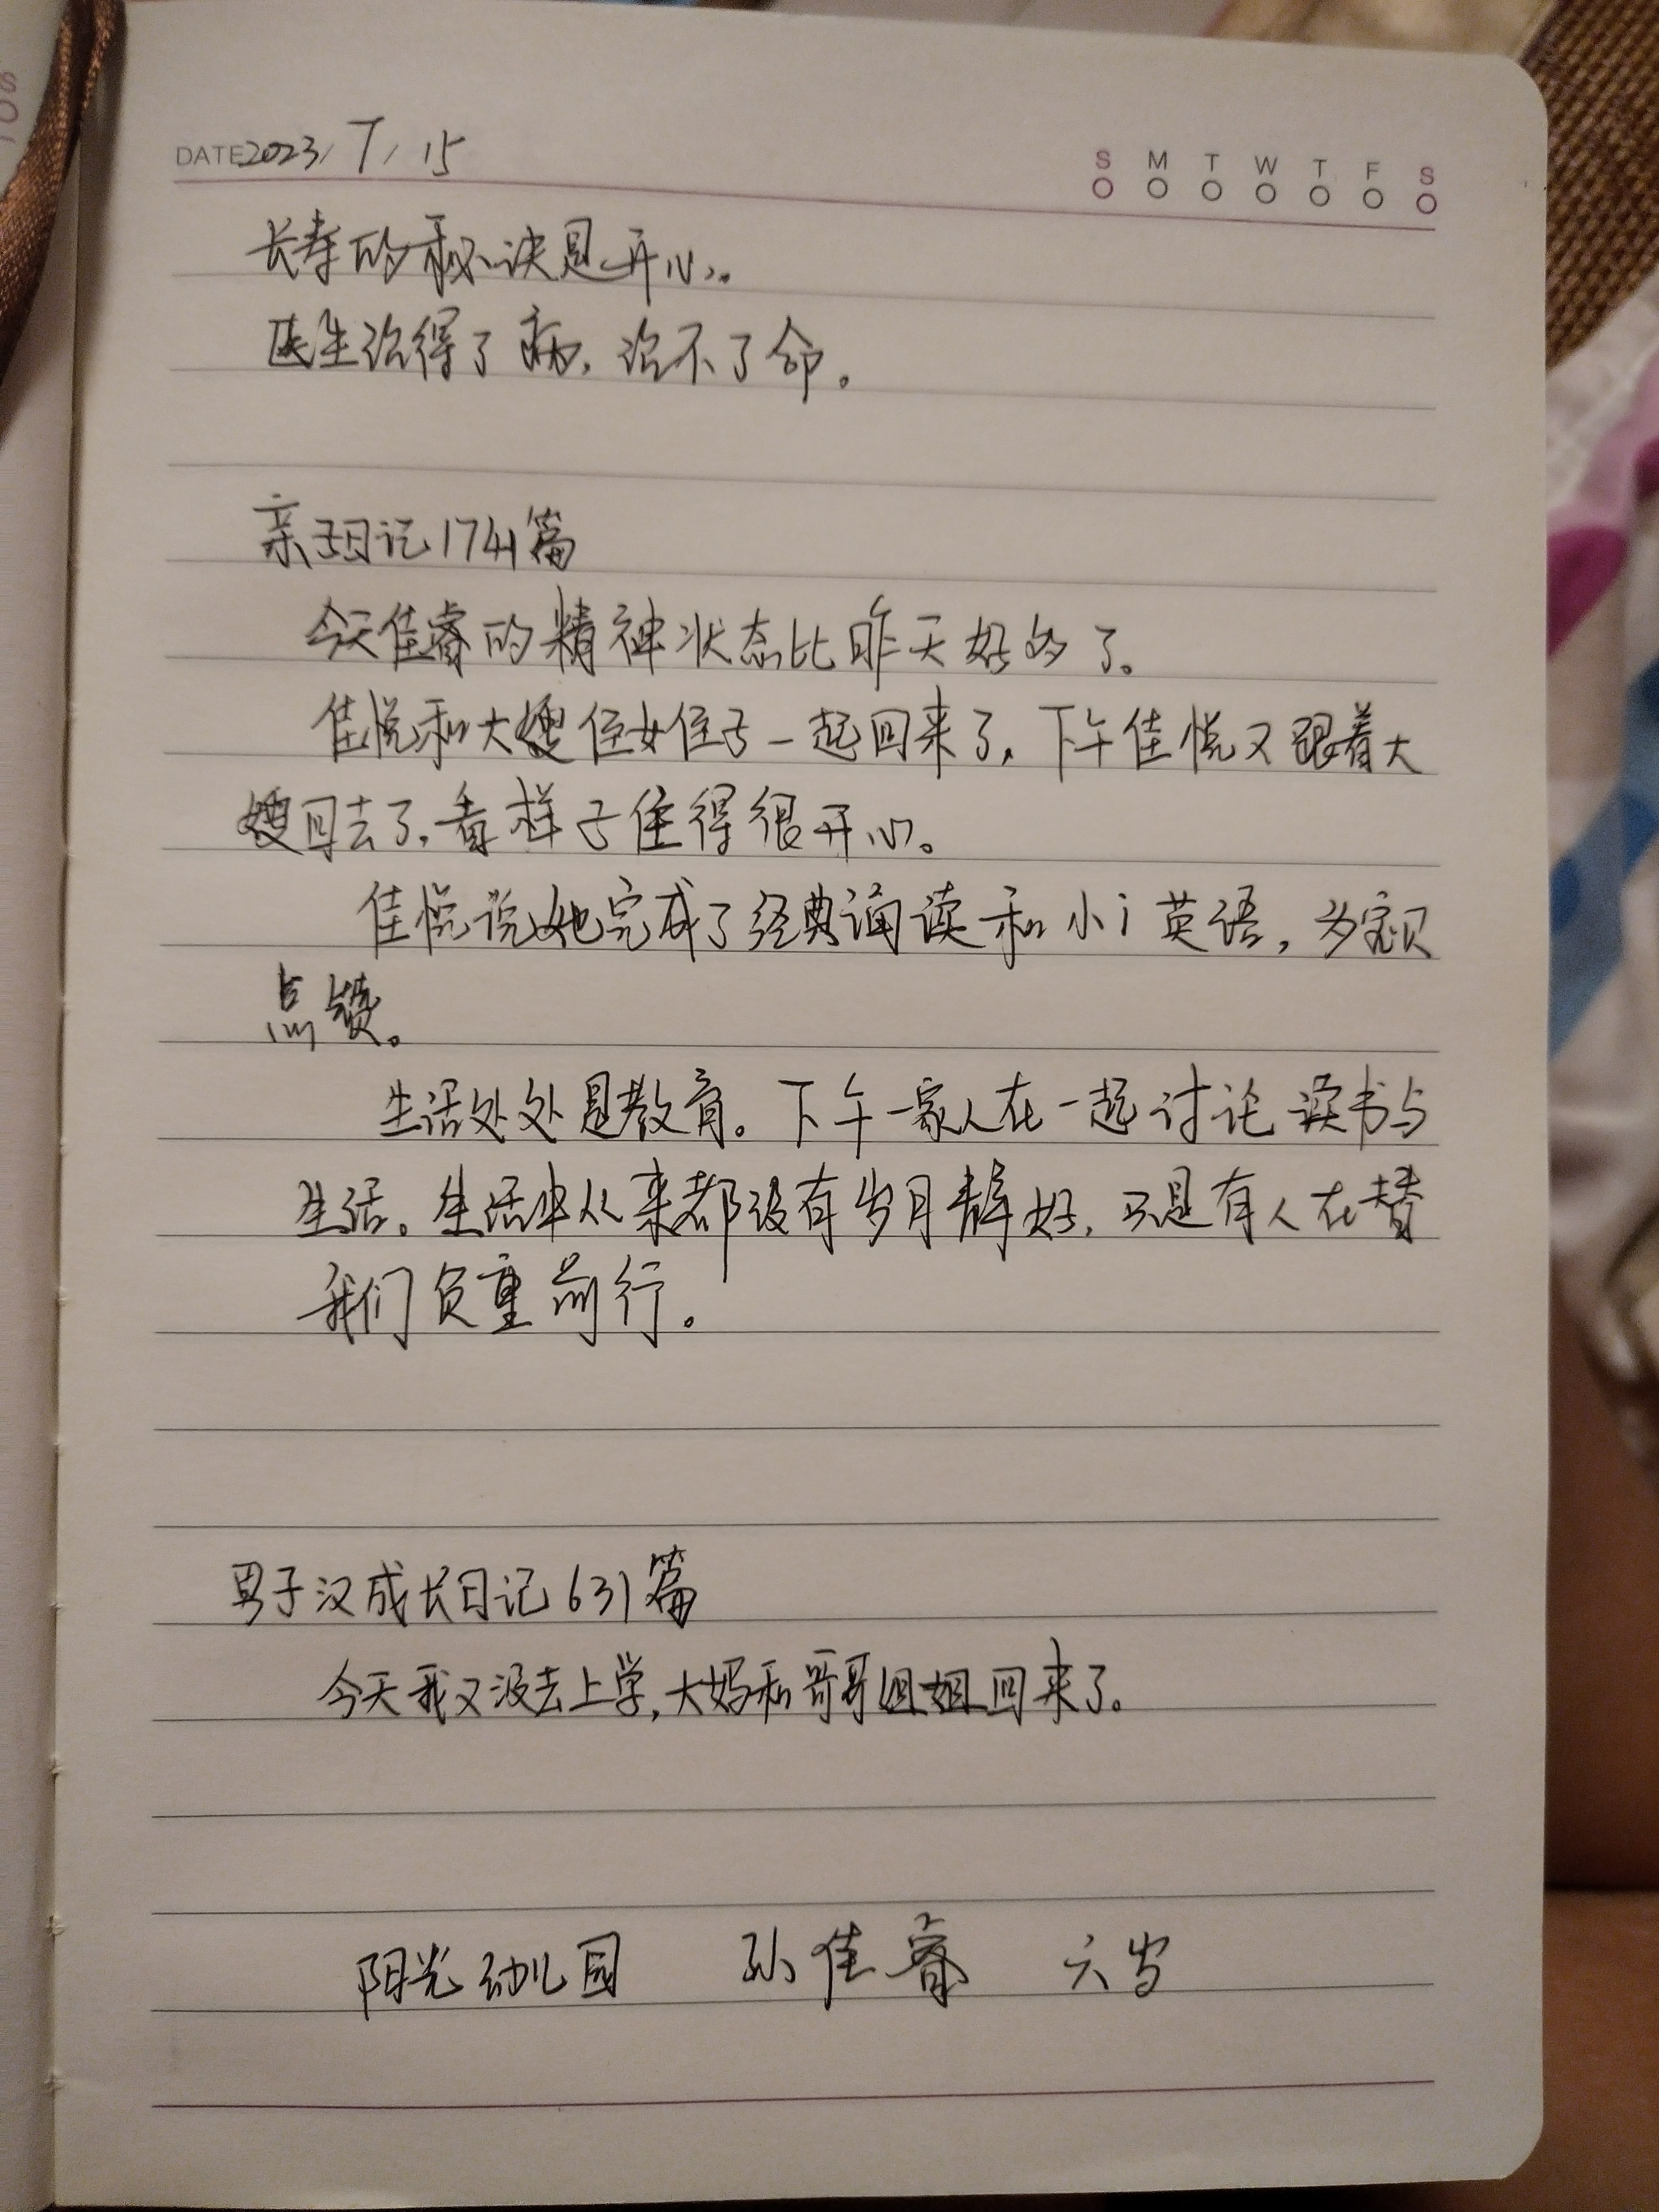 DATE 2023/7/15
S M T W T F S
长寿的秘诀是开心。
医生治得了病，治不了命。
亲子日记1741篇
今天佳睿的精神状态比昨天好多了。
佳悦和大嫂侄女侄子一起回来了，下午佳悦又跟着大
嫂回去了，看样子住得很开心。
佳悦说她完成了经典诵读和小i英语，为宝贝
点赞。
生活处处是教育。下午一家人在一起讨论读书与
生活。生活中从来都没有岁月静好，只是有人在替
我们负重前行。
男子汉成长日记631篇
今天我又没去上学，大妈和哥哥姐姐回来了。
阳光幼儿园 孙佳睿 六岁